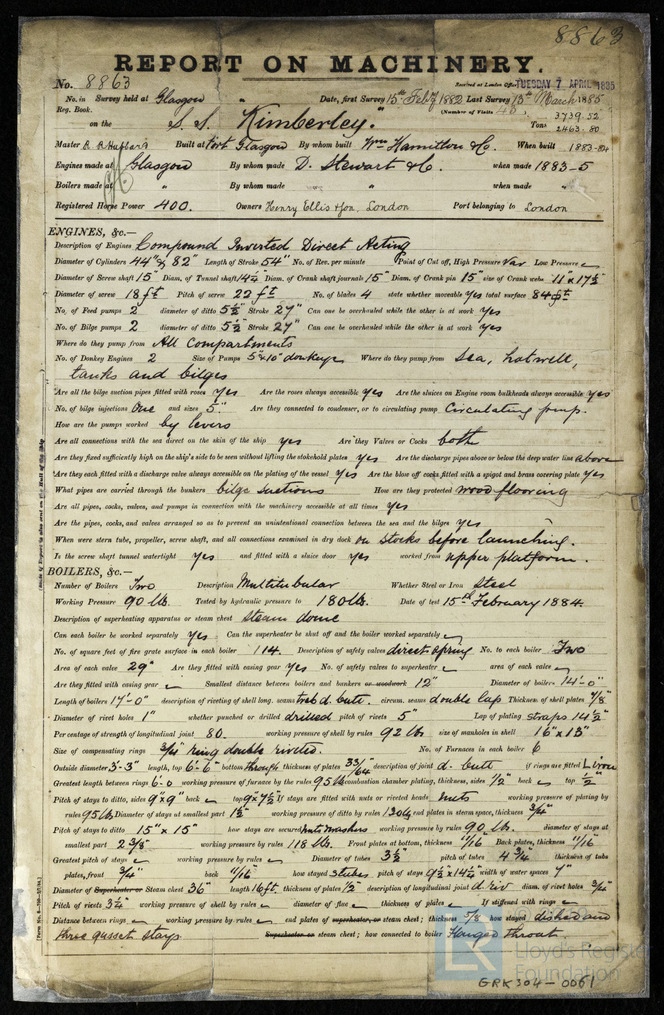 8863
REPORT ON MACHINERY.
No. 8863 Received at London Office TUESDAY 7 APRIL 1885
No. in Survey held at Glasgow Date, first Survey 15th Feby 1882 Last Survey 13th March 1885
Reg. Book. (Number of Visits 48)
on the S.S. "Kimberley" Tons 3739.52 2463.80
Master Built at Port Glasgow By whom built Wm Hamilton & Co. When built 1883-84
Engines made at Glasgow By whom made D. Stewart & Co. when made 1883-5
Boilers made at " By whom made " when made "
Registered Horse Power 400. Owners Henry Ellis & Son, London Port belonging to London
ENGINES, &c.—
Description of Engines Compound Inverted Direct Acting
Diameter of Cylinders 44" & 82" Length of Stroke 54" No. of Rev. per minute Point of Cut off, High Pressure Var Low Pressure
Diameter of Screw shaft 15" Diam. of Tunnel shaft 14¼" Diam. of Crank shaft journals 15" Diam. of Crank pin 15" size of Crank webs 11" x 17½"
Diameter of screw 18 ft Pitch of screw 22 ft No. of blades 4 state whether moveable yes total surface 84 ft
No. of Feed pumps 2 diameter of ditto 5½" Stroke 27" Can one be overhauled while the other is at work yes
No. of Bilge pumps 2 diameter of ditto 5½" Stroke 27" Can one be overhauled while the other is at work yes
Where do they pump from All Compartments
No. of Donkey Engines 2 Size of Pumps 5" x 10" donkeys Where do they pump from Sea, hotwell,
tanks and bilges
Are all the bilge suction pipes fitted with roses yes Are the roses always accessible yes Are the sluices on Engine room bulkheads always accessible yes
No. of bilge injections One and sizes 5" Are they connected to condenser, or to circulating pump Circulating pump.
How are the pumps worked by levers
Are all connections with the sea direct on the skin of the ship yes Are they Valves or Cocks both
Are they fixed sufficiently high on the ship's side to be seen without lifting the stokehold plates yes Are the discharge pipes above or below the deep water line above
Are they each fitted with a discharge valve always accessible on the plating of the vessel yes Are the blow off cocks fitted with a spigot and brass covering plate yes
What pipes are carried through the bunkers bilge suctions How are they protected wood flooring
Are all pipes, cocks, valves, and pumps in connection with the machinery accessible at all times yes
Are the pipes, cocks, and valves arranged so as to prevent an unintentional connection between the sea and the bilges yes
When were stern tube, propeller, screw shaft, and all connections examined in dry dock on stocks before launching.
Is the screw shaft tunnel watertight yes and fitted with a sluice door yes worked from upper platform.
BOILERS, &c.—
Number of Boilers Two Description Multitubular Whether Steel or Iron Steel
Working Pressure 90 lb. Tested by hydraulic pressure to 180 lb. Date of test 15th February 1884.
Description of superheating apparatus or steam chest steam dome
Can each boiler be worked separately yes Can the superheater be shut off and the boiler worked separately
No. of square feet of fire grate surface in each boiler 114. Description of safety valves direct spring No. to each boiler Two
Area of each valve 29" Are they fitted with easing gear yes No. of safety valves to superheater area of each valve
Are they fitted with easing gear Smallest distance between boilers and bunkers or woodwork 12" Diameter of boilers 14'-0"
Length of boilers 17'-0" description of riveting of shell long. seams treb d. butt. circum. seams double lap Thickness of shell plates 7/8"
Diameter of rivet holes 1" whether punched or drilled drilled pitch of rivets 5" Lap of plating straps 14½"
Per centage of strength of longitudinal joint 80. working pressure of shell by rules 92 lb size of manholes in shell 16" x 13"
Size of compensating rings ring double riveted. No. of Furnaces in each boiler 6
Outside diameter 3'-3" length, top 6'-6" bottom through thickness of plates 33/64" description of joint d. butt if rings are fitted L iron
Greatest length between rings 6'-0 working pressure of furnace by the rules 95 lb combustion chamber plating, thickness, sides 1/2" back top 1/2"
Pitch of stays to ditto, sides 9" x 9" back top 9" x 7½" If stays are fitted with nuts or riveted heads nuts working pressure of plating by
rules 95 lb Diameter of stays at smallest part 1½" working pressure of ditto by rules 130 lb end plates in steam space, thickness 3/4"
Pitch of stays to ditto 15" x 15" how stays are secured nuts & washers working pressure by rules 90 lb. diameter of stays at
smallest part 2 3/8" working pressure by rules 118 lb. Front plates at bottom, thickness 11/16" Back plates, thickness 11/16"
Greatest pitch of stays working pressure by rules Diameter of tubes 3½" pitch of tubes 4¾" thickness of tube
plates, front 3/4" back 11/16" how stayed stubes pitch of stays 9½" x 14¼" width of water spaces 7"
Diameter of Superheater or Steam chest 36" length 16 ft. thickness of plates 1/2" description of longitudinal joint d. riv diam. of rivet holes 3/4"
Pitch of rivets 3¼" working pressure of shell by rules diameter of flue thickness of plates If stiffened with rings
Distance between rings working pressure by rules end plates of superheater, or steam chest; thickness 5/8 how stayed dished and
three gusset stays Superheater or steam chest; how connected to boiler flanged throat.
Lloyd's Register
Foundation
GRK304-0061